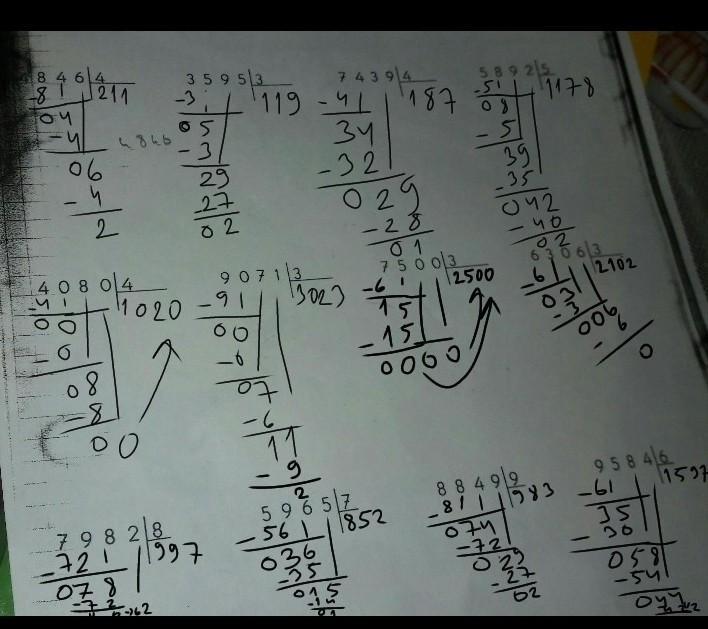 846 4
-8 211
04
-4
06
-4
2
4846
3595 3
-3 119
05
-3
29
27
02
7439 4
-4 187
34
-32
029
-28
01
5892 5
-5 1178
08
-5
39
-35
042
-40
02
4080 4
-4 1020
00
-0
08
-8
00
9071 3
-9 3023
00
-0
07
-6
11
-9
2
7500 3
-6 2500
15
-15
0000
6306 3
-6 2102
03
-3
006
-6
0
7982 8
-72 997
078
-72
5965 7
-56 852
036
-35
015
-14
01
8849 9
-81 983
074
-72
029
-27
02
9584 6
-6 1597
35
-30
058
-54
044